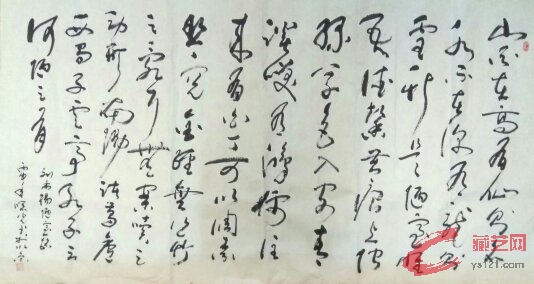 山不在高有仙则名
水不在深有龙则
灵斯是陋室惟
吾德馨苔痕上阶
绿草色入帘青
谈笑有鸿儒往
来无白丁可以调素
琴阅金经无丝竹
之乱耳无案牍之
劳形南阳诸葛庐
西蜀子云亭孔子云
何陋之有
刘禹锡陋室铭
藏艺网
ys121.com